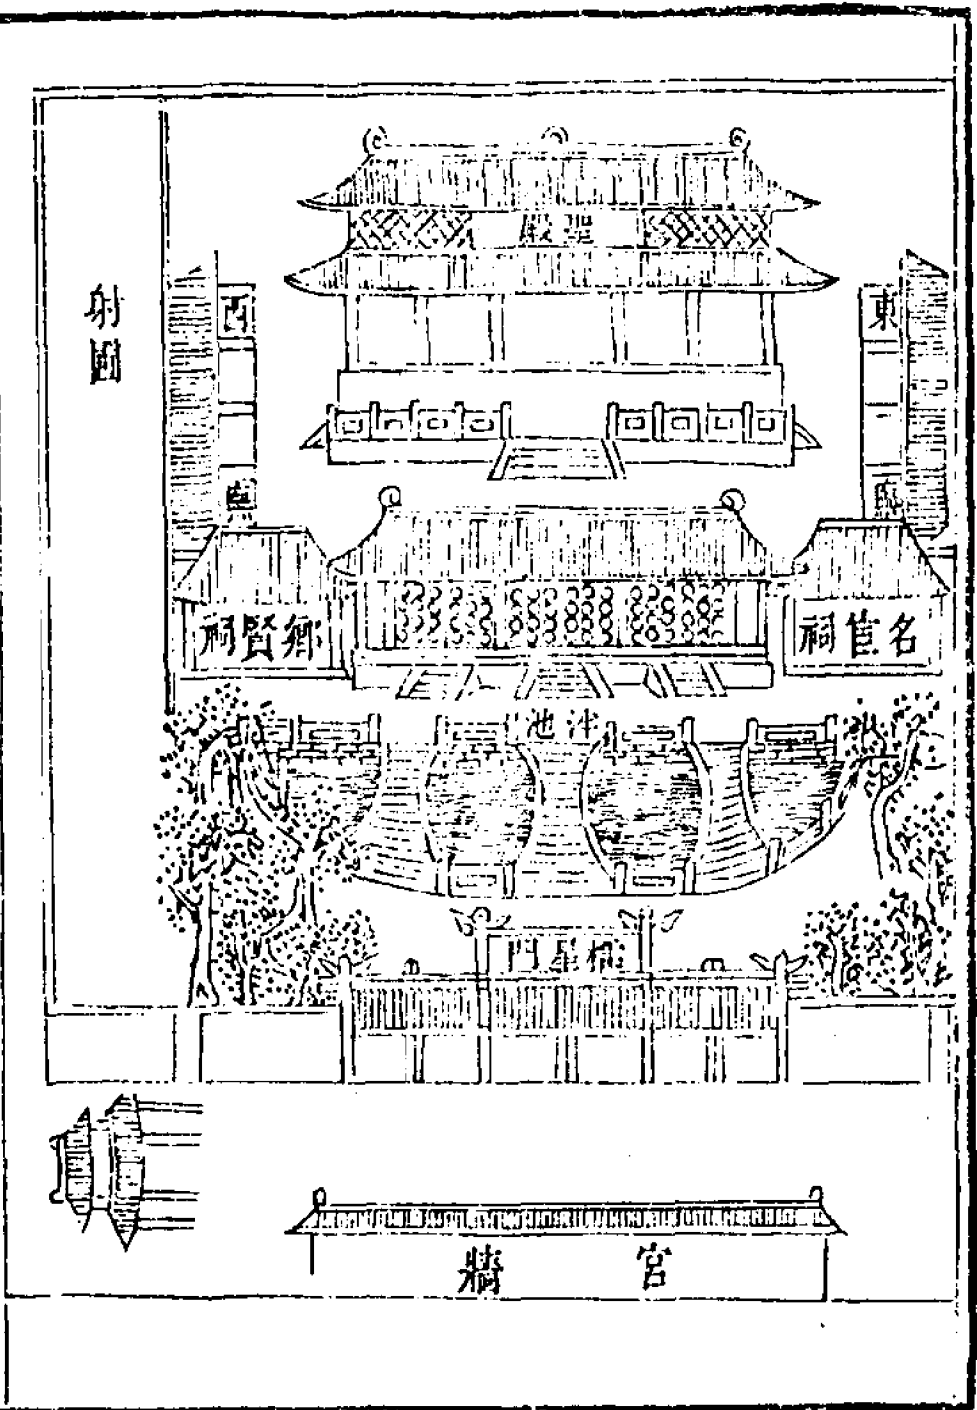 聖殿
東廡
西廡
射圃
名宦祠
鄉賢祠
泮池
櫺星門
宮牆